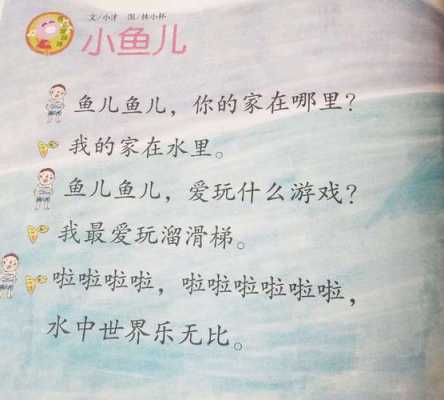 文/小才 图/林小杯
小鱼儿
鱼儿鱼儿，你的家在哪里？
我的家在水里。
鱼儿鱼儿，爱玩什么游戏？
我最爱玩溜滑梯。
啦啦啦啦，啦啦啦啦啦啦，
水中世界乐无比。